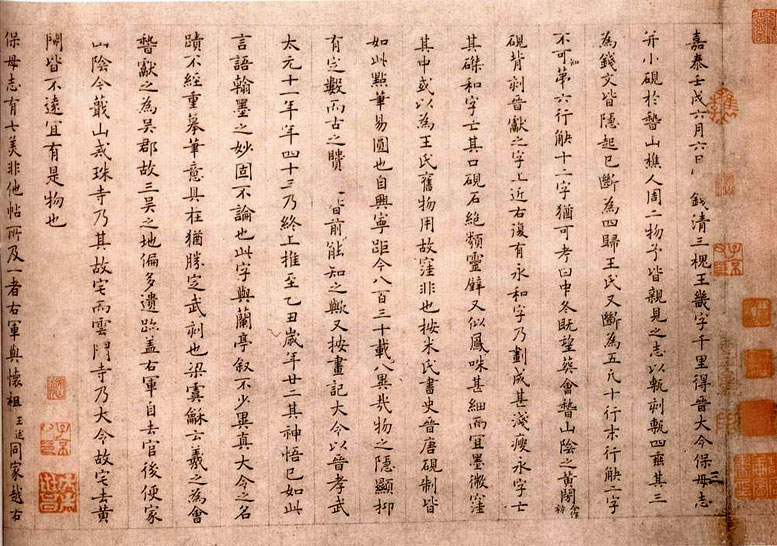 嘉泰壬戌六月六日 錢清三槐王畿字千里得晉大令保母志
并小硯於嵇山樵人周二物予皆親見之志以甎刻甎四垂其三
為錢文皆隱起已斷為四歸王氏又斷為五凡十行末行缺二字
不可知第六行缺十二字猶可考曰中冬既望葬會稽山陰之黃閍
硯背刻晉獻之字上近右復有永和字乃劃成甚淺瘦永字亡
其磔和字亡其口硯石絕類靈壁又似鳳咮甚細而宜墨微窪
其中或以為王氏舊物用故窪非也按米氏書史晉唐硯制皆
如此點筆易圓也自興寧距今八百三十載八異哉物之隱顯抑
有定數而古之賢 皆前能知之歟又按畫記大令以晉孝武
太元十一年年四十三乃終上推至乙丑歲年廿二其神悟已如此
言語翰墨之妙固不論也此字與蘭亭叙不少異真大令之名
蹟不經重摹筆意具在猶勝定武刻也梁虞龢云羲之為會
稽獻之為吳郡故三吳之地偏多遺跡蓋右軍自去官後便家
山陰今蕺山戒珠寺乃其故宅而雲門寺乃大令故宅去黃
閍皆不遠宜有是物也
保母志有七美非他帖所及一者右軍與懷祖王述同家越右
三